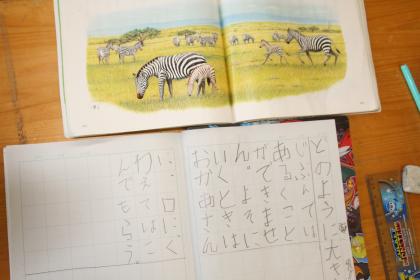 どのように大き
じぶんでは
あるくこと
ができませ
ん。よそに
いくときは
おかあさん
に、口にく
わえてはこ
んでもらう